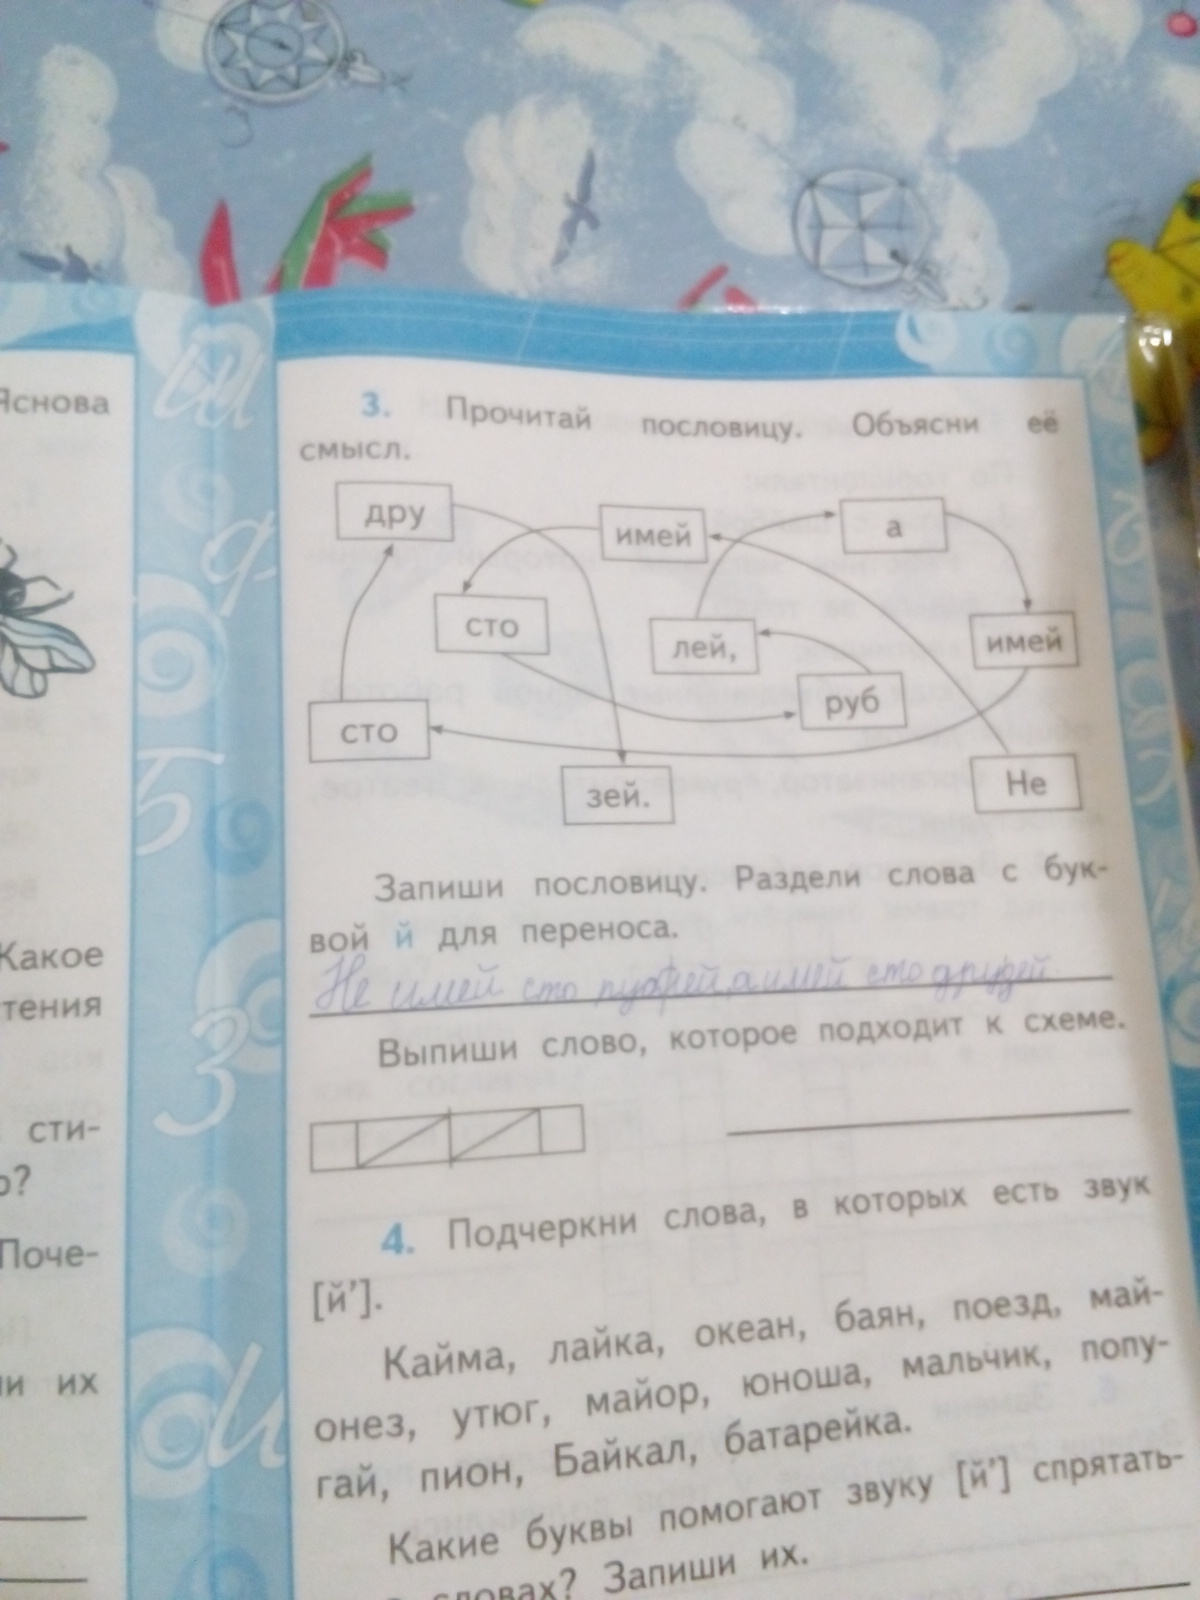 Яснова
3. Прочитай пословицу. Объясни её
смысл.
дру
имей
а
сто
лей,
имей
руб
сто
зей.
Не
Запиши пословицу. Раздели слова с бук-
вой й для переноса.
Не имей сто рублей, а имей сто друзей.
Выпиши слово, которое подходит к схеме.
4. Подчеркни слова, в которых есть звук
[й'].
Кайма, лайка, океан, баян, поезд, май-
онез, утюг, майор, юноша, мальчик, попу-
гай, пион, Байкал, батарейка.
Какие буквы помогают звуку [й'] спрятать-
словах? Запиши их.
Какое
тения
сти-
о?
Поче-
их